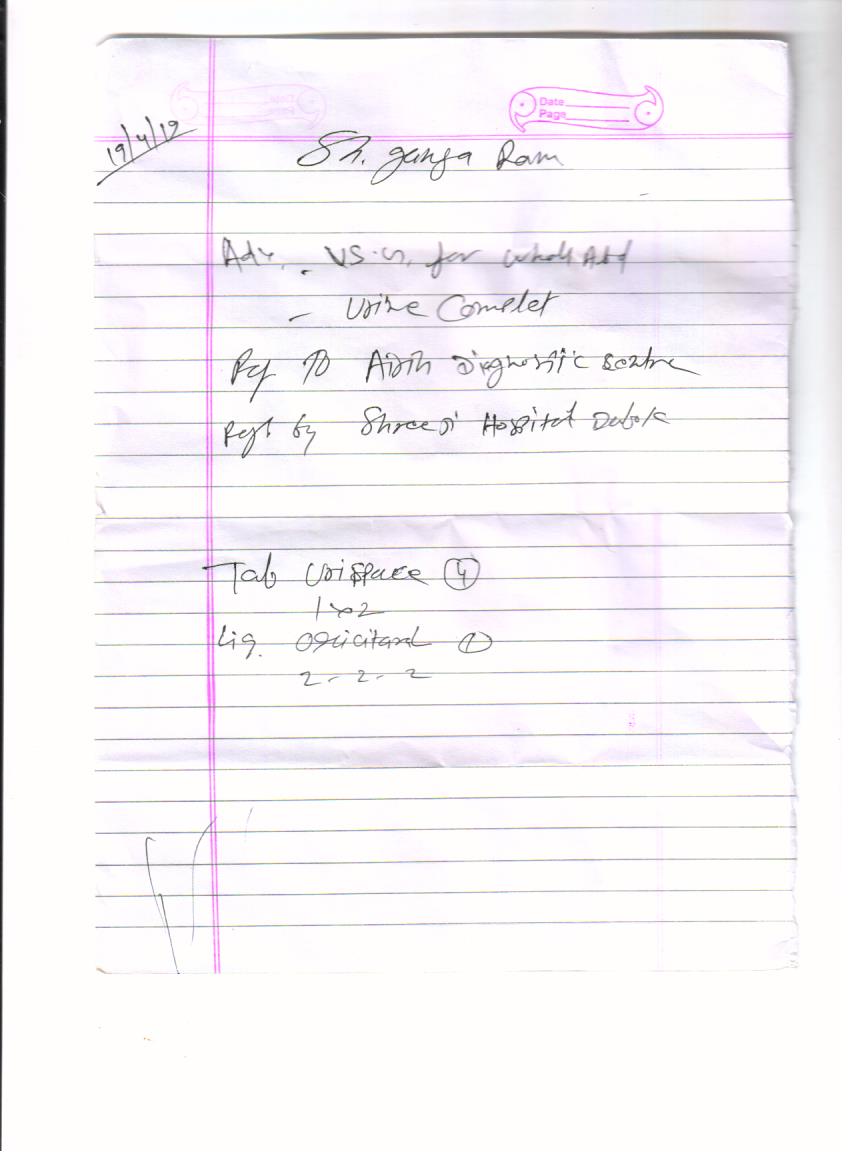 Date
Page
19/4/19
Sh. ganga Ram
Adv. - US.G. for whole Abd
- Urine Complet
Ref To Diagnostic
by Shreeji Hospital Dabok
Tab Urispace 4
1x2
Liq. 1
2 - 2 - 2